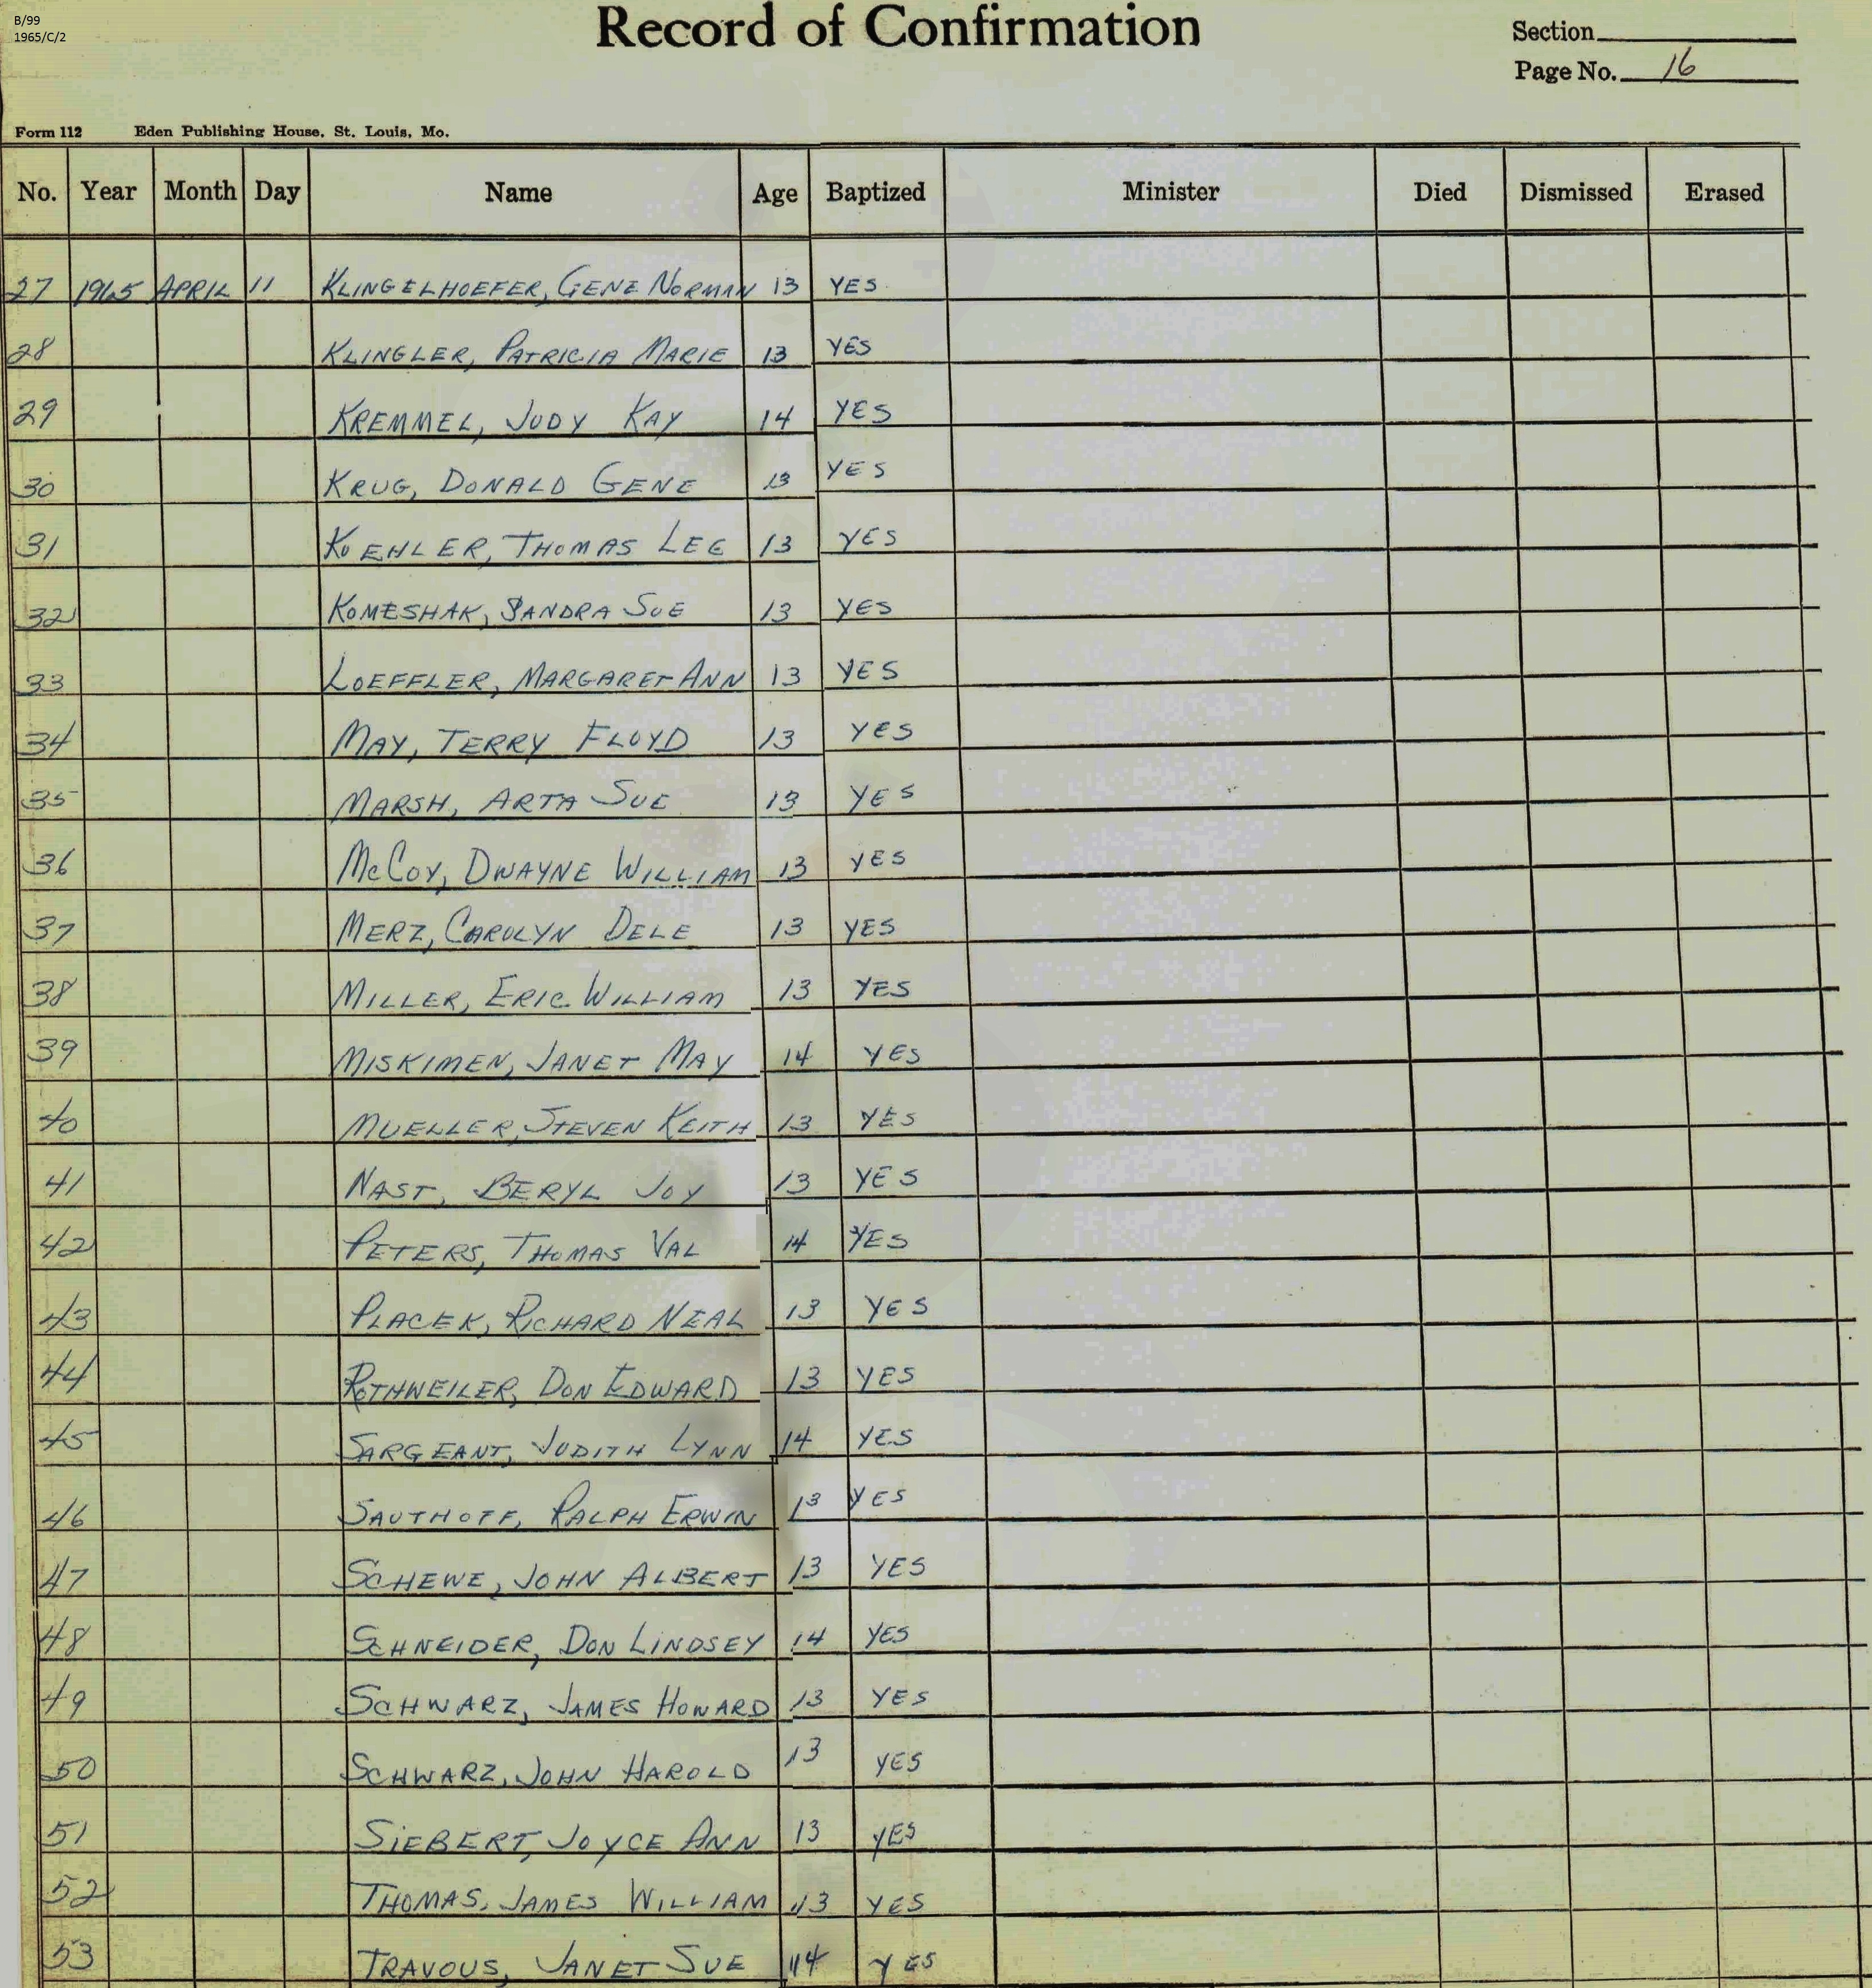 B/99
1965/C/2
Record of Confirmation
Section
Page No. 16
Form 112 Eden Publishing House, St. Louis, Mo.
No. Year Month Day Name Age Baptized Minister Died Dismissed Erased
27 1965 APRIL 11 KLINGELHOEFER, GENE NORMAN 13 YES
28 KLINGLER, PATRICIA MARIE 13 YES
29 KREMMEL, JUDY KAY 14 YES
30 KRUG, DONALD GENE 13 YES
31 KOEHLER, THOMAS LEE 13 YES
32 KOMESHAK, SANDRA SUE 13 YES
33 LOEFFLER, MARGARET ANN 13 YES
34 MAY, TERRY FLOYD 13 YES
35 MARSH, ARTA SUE 13 YES
36 McCOY, DWAYNE WILLIAM 13 YES
37 MERZ, CAROLYN DELE 13 YES
38 MILLER, ERIC WILLIAM 13 YES
39 MISKIMEN, JANET MAY 14 YES
40 MUELLER, STEVEN KEITH 13 YES
41 NAST, BERYL JOY 13 YES
42 PETERS, THOMAS VAL 14 YES
43 PLACEK, RICHARD NEAL 13 YES
44 ROTHWEILER, DON EDWARD 13 YES
45 SARGEANT, JUDITH LYNN 14 YES
46 SAUTHOFF, RALPH ERWIN 13 YES
47 SCHEWE, JOHN ALBERT 13 YES
48 SCHNEIDER, DON LINDSEY 14 YES
49 SCHWARZ, JAMES HOWARD 13 YES
50 SCHWARZ, JOHN HAROLD 13 YES
51 SIEBERT, JOYCE ANN 13 YES
52 THOMAS, JAMES WILLIAM 13 YES
53 TRAVOUS, JANET SUE 14 YES